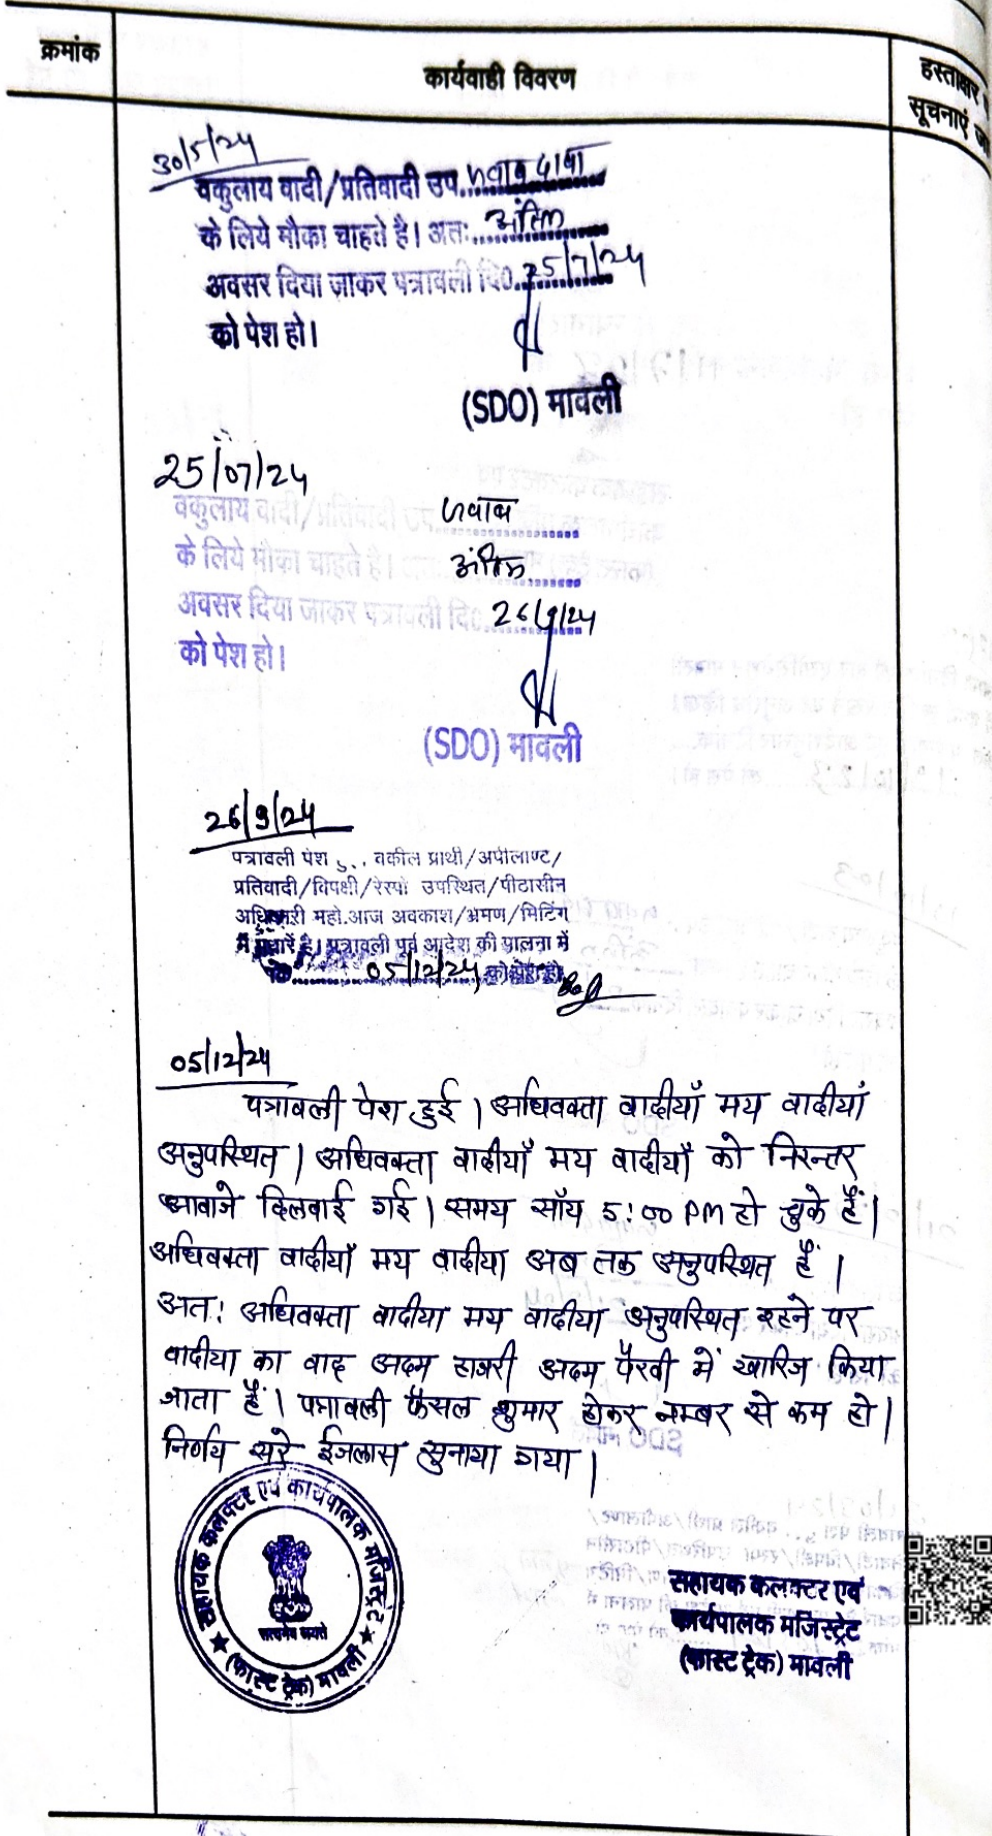 क्रमांक
कार्यवाही विवरण
हस्ताक्षर
सूचनाएं
30/5/24
वकुलाय वादी/प्रतिवादी उप. जवाब दावा
के लिये मौका चाहते है। अतः अंतिम
अवसर दिया जाकर पत्रावली दि0. 25/7/24
को पेश हो।
(SDO) मावली
25/07/24
वकुलाय वादी/प्रतिवादी उप. जवाब
के लिये मौका चाहते है। अतः अंतिम
अवसर दिया जाकर पत्रावली दि0. 26/9/24
को पेश हो।
(SDO) मावली
26/9/24
पत्रावली पेश वकील प्रार्थी/अपीलाण्ट/
प्रतिवादी/विपक्षी/रेस्पो उपस्थित/पीटासीन
अधिकारी महो.आज अवकाश/भ्रमण/मिटिंग
में पधारें है। पत्रावली पूर्व आदेश की पालना में
05/12/24 को पेश हो
05/12/24
पत्रावली पेश हुई। अधिवक्ता वादीयाँ मय वादीयां
अनुपस्थित। अधिवक्ता वादीयाँ मय वादीयाँ को निरन्तर
आवाजे दिलवाई गई। समय साँय 5:00 PM हो चुके हैं।
अधिवक्ता वादीयाँ मय वादीया अब तक अनुपस्थित हैं।
अतः अधिवक्ता वादीया मय वादीया अनुपस्थित रहने पर
वादीया का वाद अदम हाजरी अदम पैरवी में खारिज किया
जाता हैं। पत्रावली फैसल शुमार होकर नम्बर से कम हो।
निर्णय सरे ईजलास सुनाया गया।
सहायक कलक्टर एवं कार्यपालक मजिस्ट्रेट
सत्यमेव जयते
(फास्ट ट्रेक) मावली
सहायक कलक्टर एवं
कार्यपालक मजिस्ट्रेट
(फास्ट ट्रेक) मावली